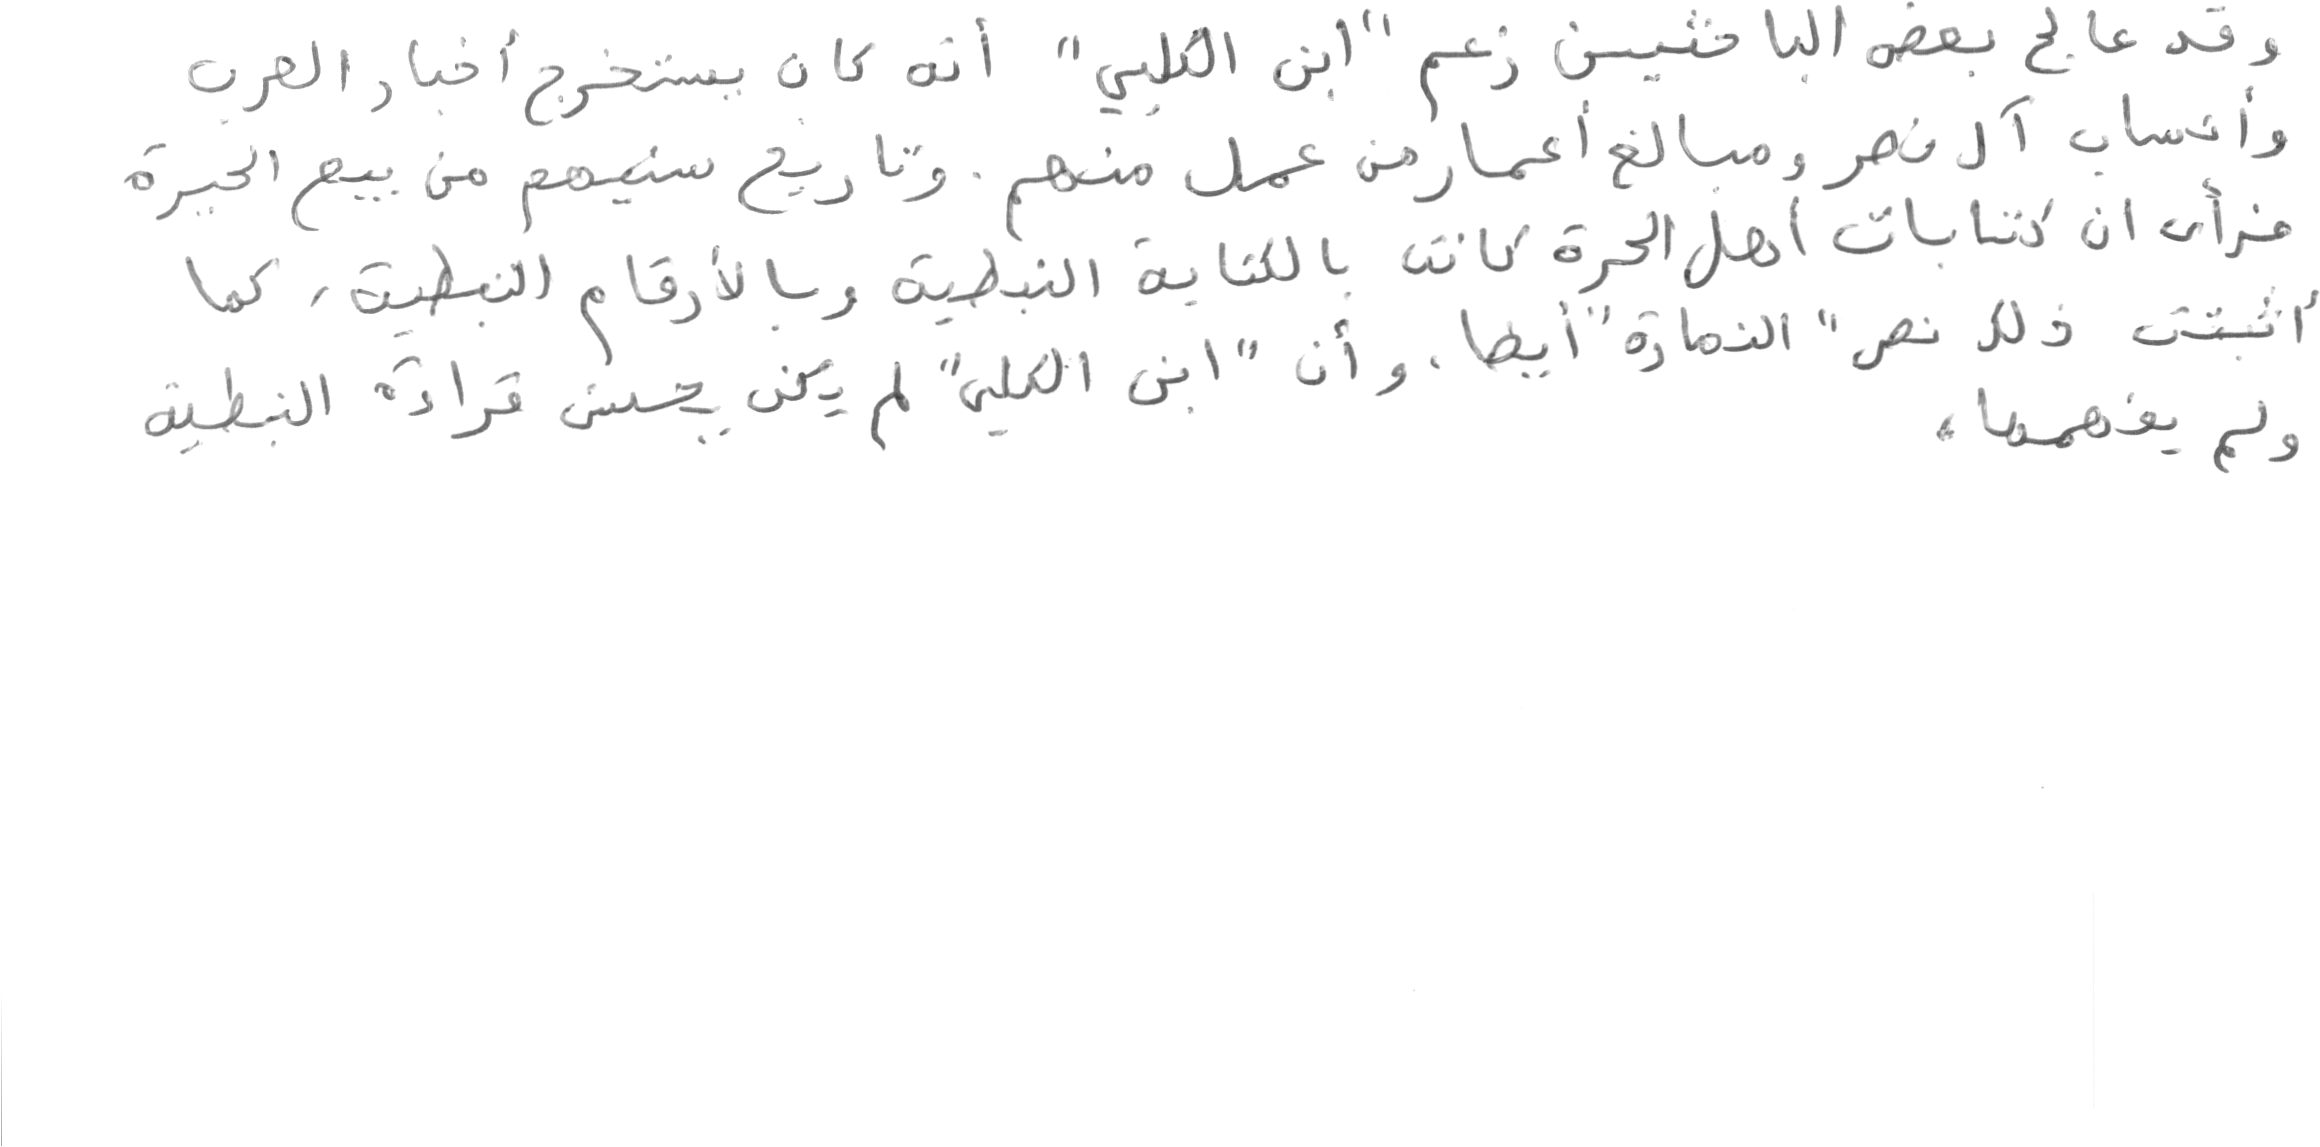 وقد عالج بعض الباحثين زعم "ابن الكلبي" أنه كان يستخرج أخبار العرب
وأنساب آل نصر ومبالغ أعمار من عمل منهم. وتاريخ سنيهم من بيع الحيرة
فرأى ان كتابات أهل الحرة كانت بالكتابة النبطية وبالأرقام النبطية، كما
أثبتت ذلك نص "النمارة" أيضا. وأن "ابن الكلبي" لم يكن يحسن قراءة النبطية
ولم يفهمها،